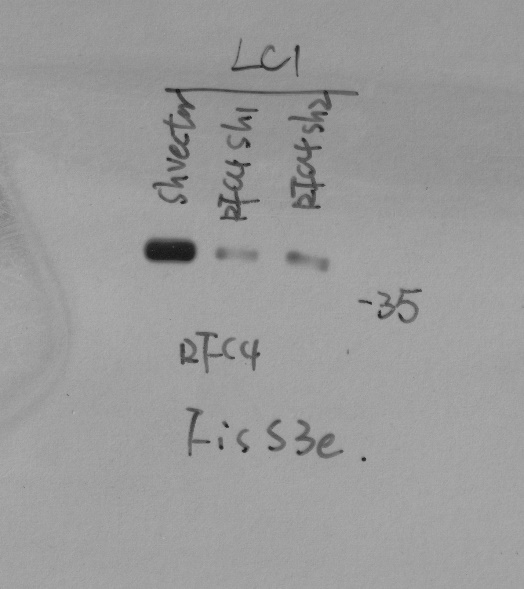 LC1
shvector RFC4 sh1 RFC4 sh2
-35
RFC4
Fig S3e.